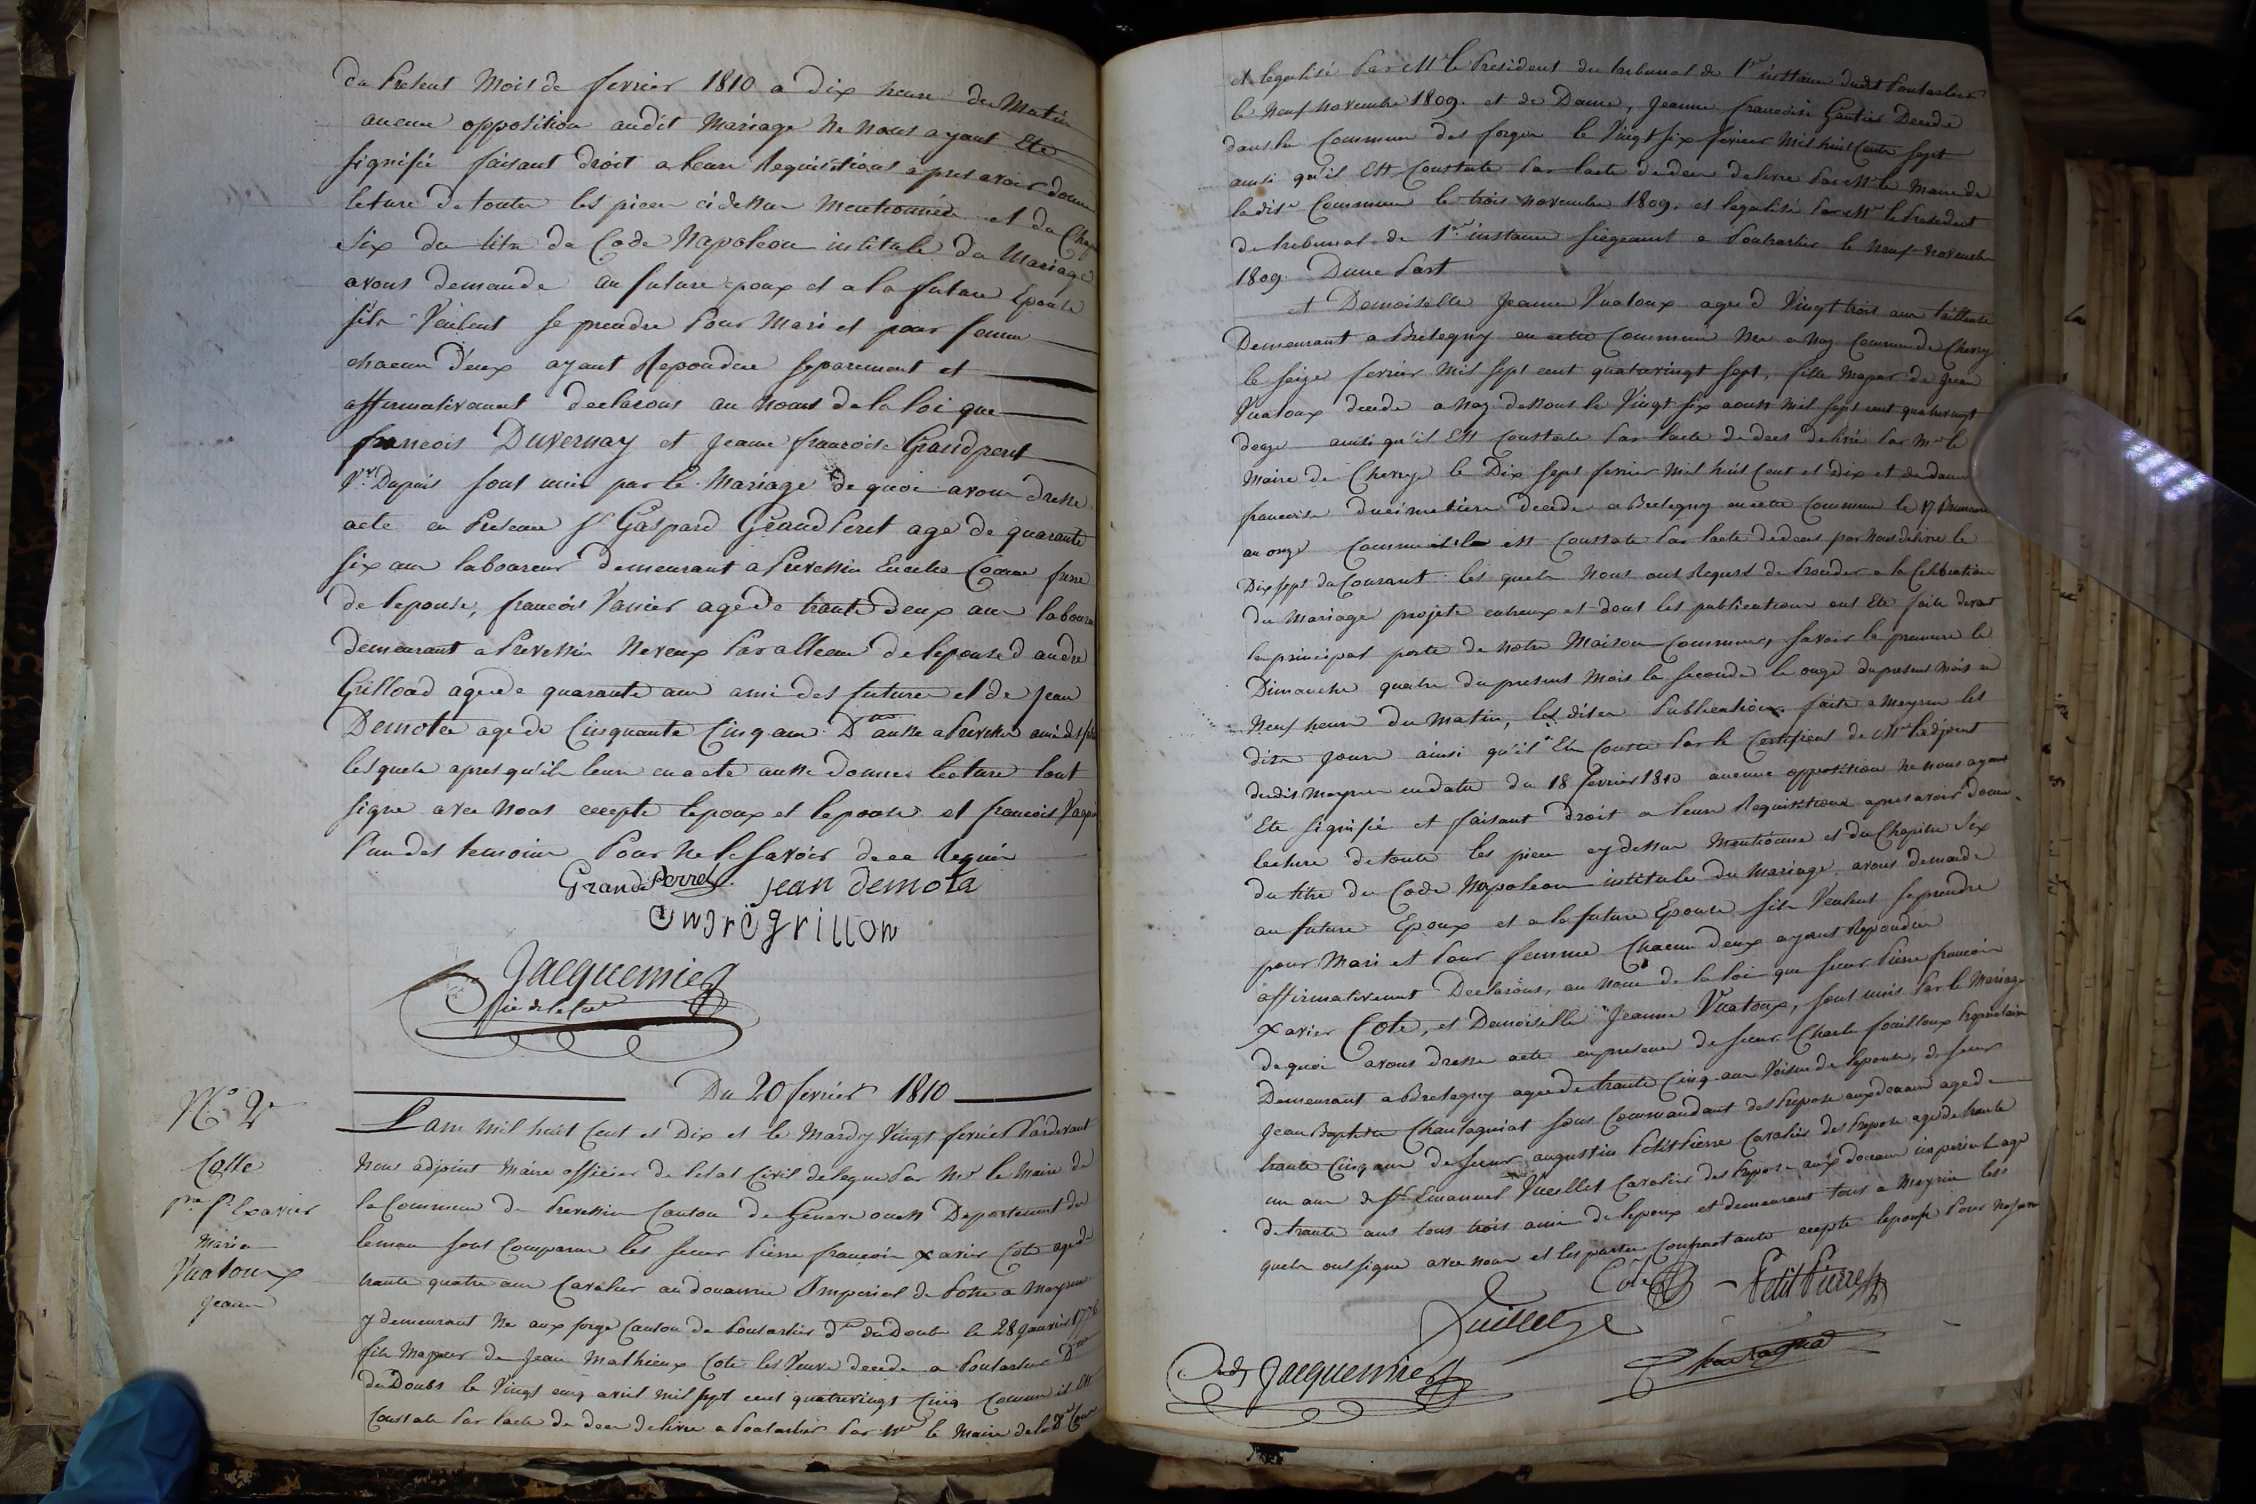 du present mois de fevrier 1810 a dix heure du Matin
aucune opposition audit Mariage ne nous ayant Ete
signifié faisant droit a leurs Requisitions apres avoir donné
leture de toutes les pieces cidessus Mentionnée et du Chap
Six du titre du Code Napoleon intitulé du Mariage
avons demandé au future epoux et a la future Epouse
sils veulent se prendre pour Mari et pour femme
chacun d'eux ayant Repondue separement et
affirmativement declarons au nom de la loi que
francois Duvernay et Jeanne francoise Grandperet
V.ve Dupuis sont unis par le Mariage de quoi avons dressé
acte en Presence Sr Gaspard Grand Peret agé de quarante
six ans laboureur demeurant a Prevessin frere
de lepouse, francois Vanier agé de trante deux ans laboureur
demeurant a Prevessin Neveux par alleance de lepouse d andré
Grilloud agé de quarante ans ami des futures et de Jean
Demotta agé de Cinquante Cinq ans Dt aussi a Prevessin ami des
lesquels apres qu'il leur en a eté aussi donnée lecture sont
signé avec nous excepté lepoux et lepouse et francois
l'un des temoins Pour ne le savoir de ce Requis
Grand Perret jean demota
andré grillon
Jacquemier
Du 20 fevrier 1810
No 2e
Colle
pre fs Exavier
Marié a
Vuatoux
Jeanne
L'ann mil huit Cent et Dix et le Mardy Vingt fevrier Pardevant
nous adjoint Maire officier de letat Civil delegué par Mr le Maire de
la Commune de Prevessin Canton de Geneve ouest Departement du
leman sont Comparus les sieur Pierre francois Xavier Cote agé de
trante quatre ans Cavalier au douanne Imperial de Poste a Meyrin
y demeurant né aux forge Canton de Pontarlier dt du Doubs le 28 Janvier 1776
fils Majeur de Jean Mathieux Cote les Veuve decedé a Pontarlier Dt
du Doubs le Vingt cinq avril mil sept cent quatrevingt Cinq Comme il Est
Constaté par lacte de deces delivré a Pontarlier par Mr le Maire de
et legalisé par Mr le President du tribunal de 1re instance dudit Pontarlier
le neuf Novembre 1809. et de Dame, Jeanne francoise Gautier Decedé
dans la Commune des forges le Vingt six fevrier Mil huit Cents sept
ainsi qu'il Est Constaté par lacte de deces delivré par Mr le Maire de
ladite Commune le trois Novembre 1809. et legalisé par Mr le President
de tribunal de 1re instance siegeant a Pontarlier le neuf Novembre
1809. Dune Part
et Demoiselle Jeanne Vuatoux agé d Vingt trois ans tailleuse
Demeurant a Bretegny en cette Commune Née a Naz Commune de Chevry
le seize fevrier Mil sept cent quatrevingt sept, fille Majeur de Jean
Vuatoux decedé a Naz dessous le Vingt six aoust Mil sept cent quatrevingt
doze ainsi qu'il Est Constaté par lacte de deces delivré par Mr le
Maire de Chevry le Dix sept fevrier Mil huit Cent et Dix et de dame
francoise ducimetiere decedé a Bretegny en cette Commune le 17 Brumaire
an onze Comme il Est Constaté par lacte de deces par nous delivré le
Dix sept du Courant. les quels nous ont Requis de proceder a la Celebration
du Mariage projeté entreux et dont les publications ont Eté faite devant
la principal porte de notre Maison Commune, Savoir la premiere le
Dimanche quatre du present Mois la seconde le onze du present Mois a
Neuf heure du Matin, les dites Publications faite a Meyrin les
dits jours ainsi qu'il Conste par le Certificat de Mr l'adjoint
dudit Meyrin en date du 18 fevrier 1810 aucune opposition ne nous ayant
Eté signifié et faisant Droit a leurs Requisitions apres avoir donné
lecture de toute les pieces cy dessus Mentionné et du Chapitre Six
du titre du Code Napoleon intitulé du Mariage. avons demandé
au future Epoux et a la future Epouse sils Veulent se prendre
pour Mari et pour femme Chacun deux ayant Repondue
affirmativement Declarons, au nom de la loi que sieur Pierre francois
Xavier Cote, et Demoiselle Jeanne Vuatoux, sont unis par le Mariage
de quoi avons dressé acte en presence de sieur Charle fouilloux
Demeurant a Bretegny agé de trante Cinq ans Voisin de lepouse, de sieur
Jean Baptiste Chantagniat sous Commandant des Preposé aux douane agé de
trante Cinq ans de sieur augustin Petit Pierre Cavalier des Preposé agé de trante
un ans de Sr Emanuel Vueillet Cavalier des Preposé aux douane imperial agé
de trante ans tous trois ami de lepoux et demeurant tous a Meyrin les
quels ont signé avec nous et les parties Contractante excepté lepouse Pour
Cote Petit Pierre
Vuillet
Chantagnat
Jacquemier